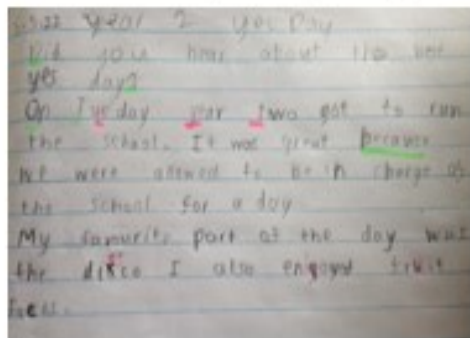 Year 2 yes Day
Did you hear about the
yes day?
On Tusday year two got to run
the school. It was great because
we were allowed to be in charge of
the school for a day
My favourite part of the day was
the disco I also enjoyd fruit